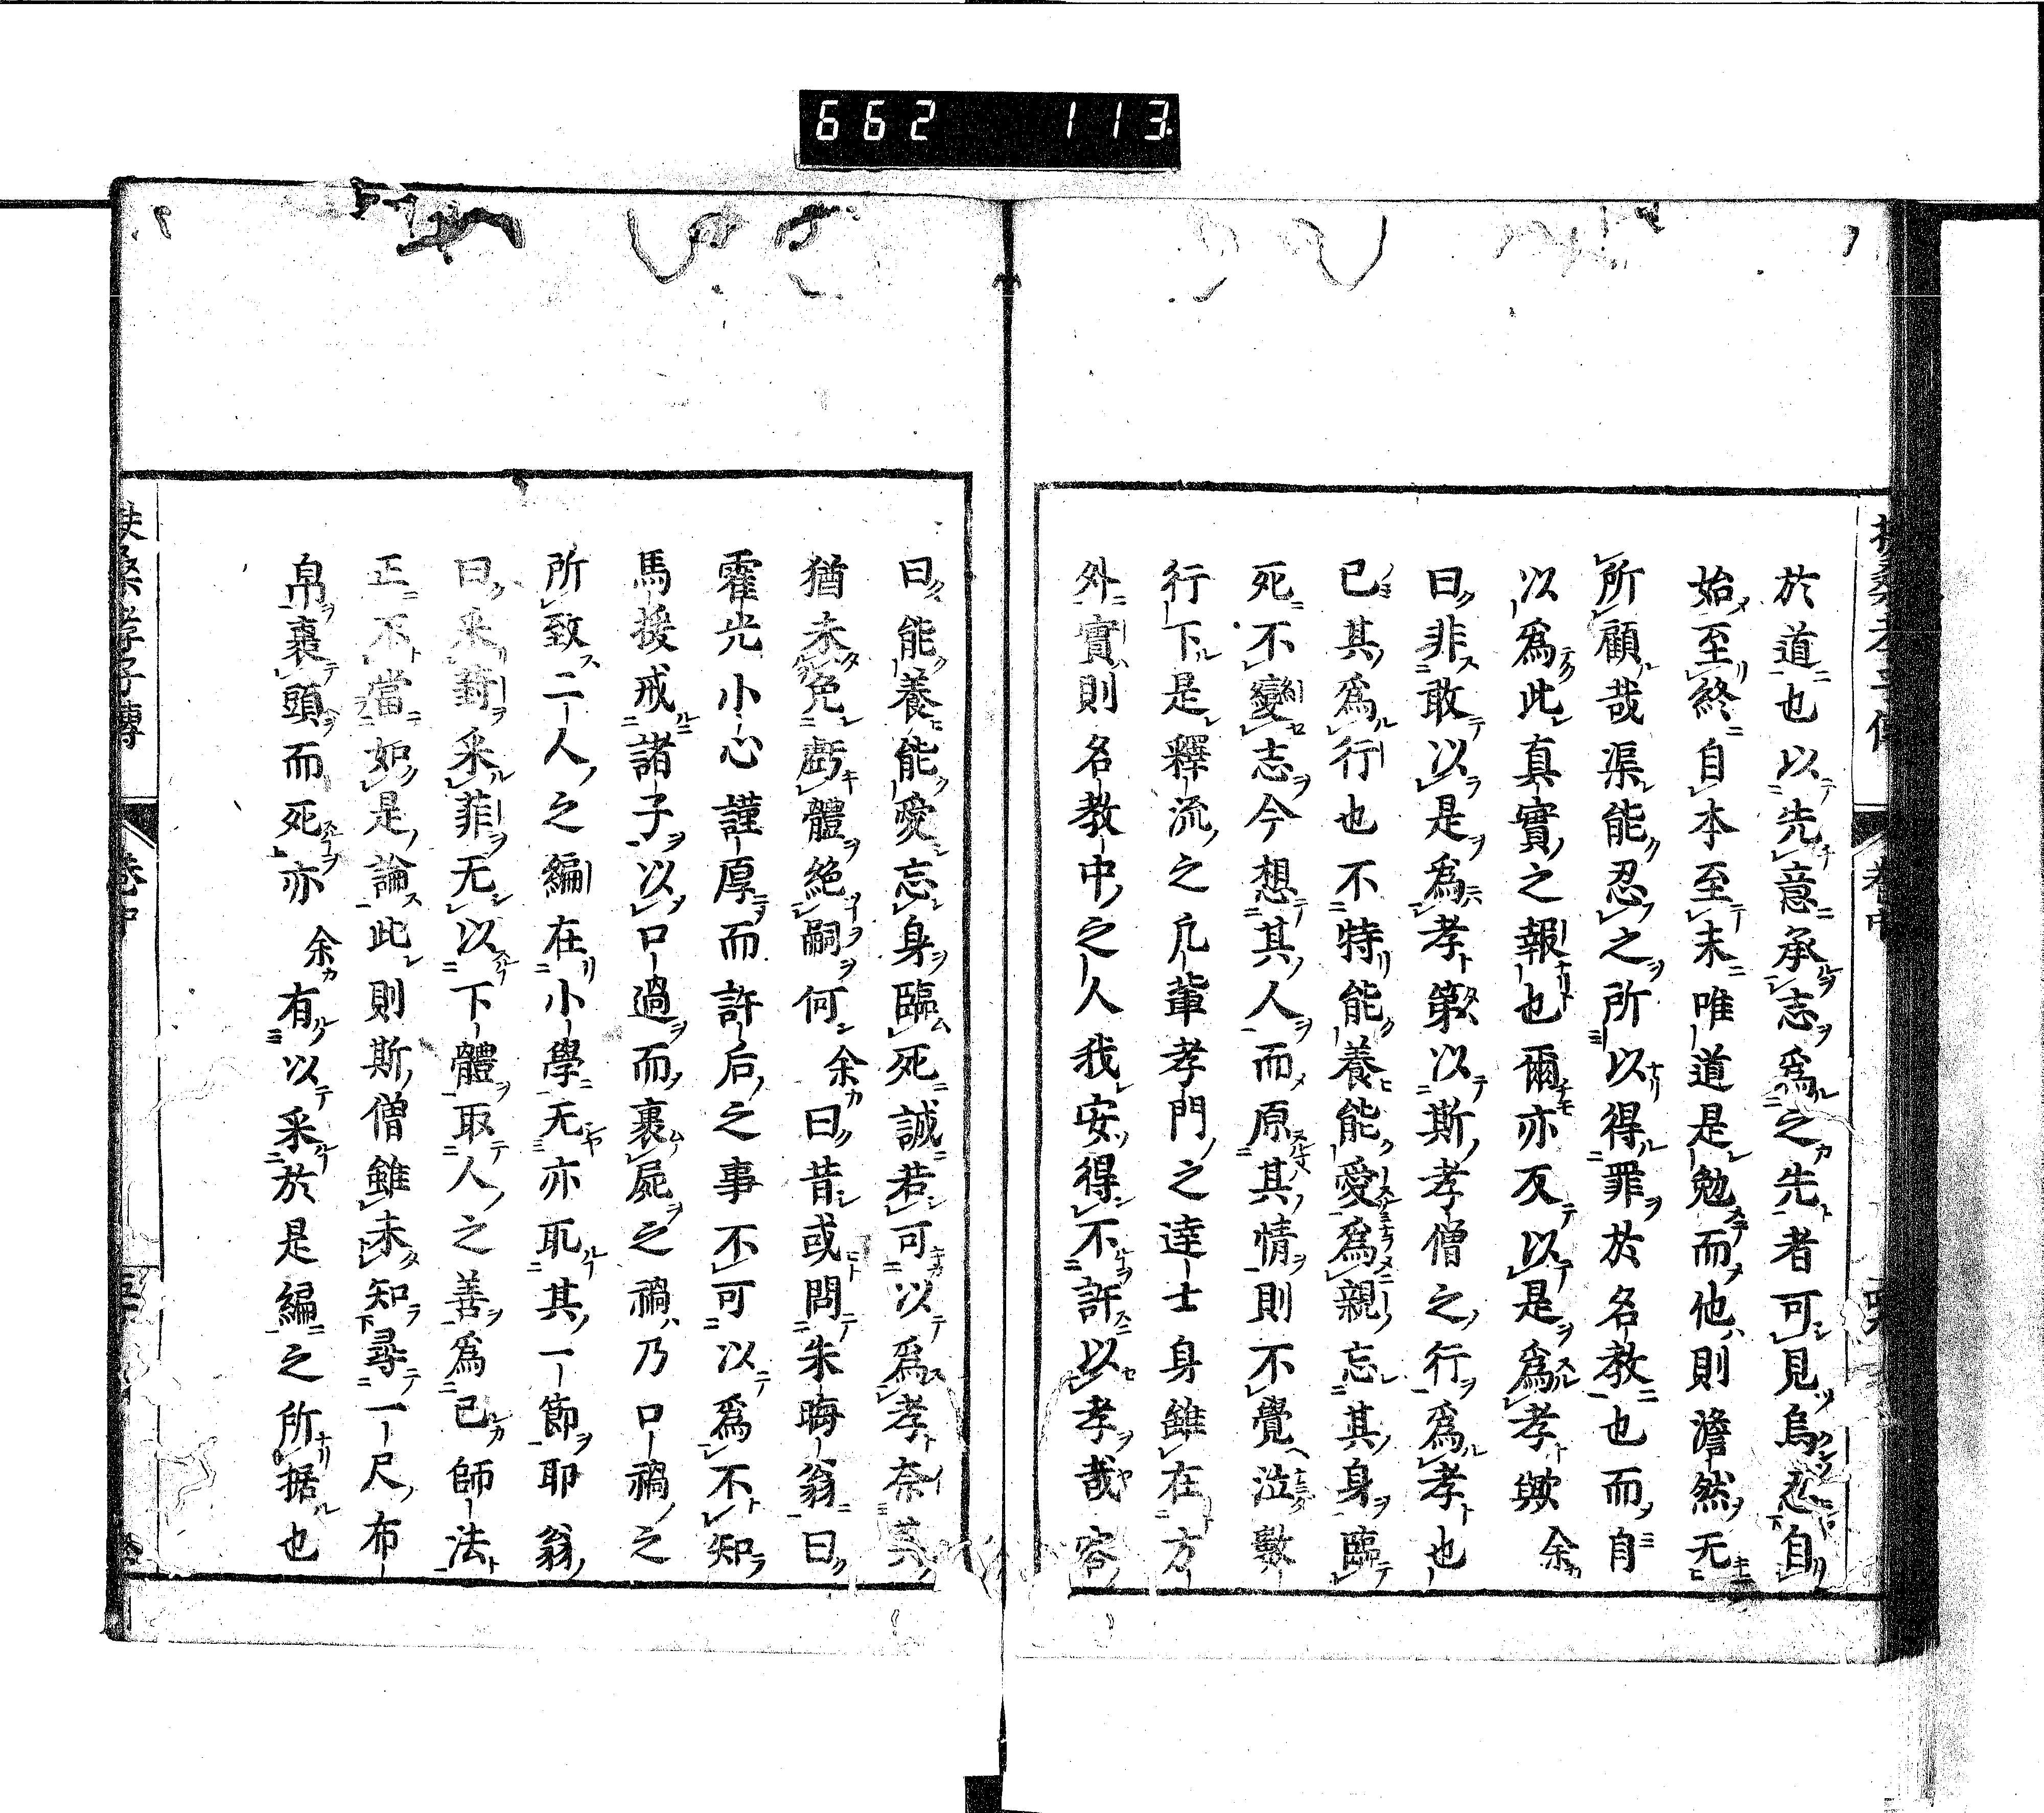 扶桑孝子傳 卷中
於道也以先意承志爲之先者可見烏自
始至終自本至末唯道是勉而他則澹然无
所顧哉渠能忍之所以得罪於名教也而自
以爲此真實之報也爾亦反以是爲孝歟余
曰非敢以是爲孝第以斯孝僧之行爲孝也
已其爲行也不特能養能愛爲親忘其身臨
死不變志今想其人而原其情則不覺泣數
行下是釋流之凡輩孝門之達士身雖在方
外實則名教中之人我安得不許以孝哉容
曰能養能愛忘身臨死誠若可以爲孝奈其
猶未免虧體絕嗣何余曰昔或問朱晦翁曰
霍光小心謹厚而許后之事不可以爲不知
馬援戒諸子以口過而裹屍之禍乃口禍之
所致二人之編在小學无亦取其一節耶翁
曰采葑采菲无以下體取人之善爲己師法
正不當如是論此則斯僧雖未知尋一尺布
帛裹頭而死亦余有以采於是編之所据也
扶桑孝子傳 卷中
662 113